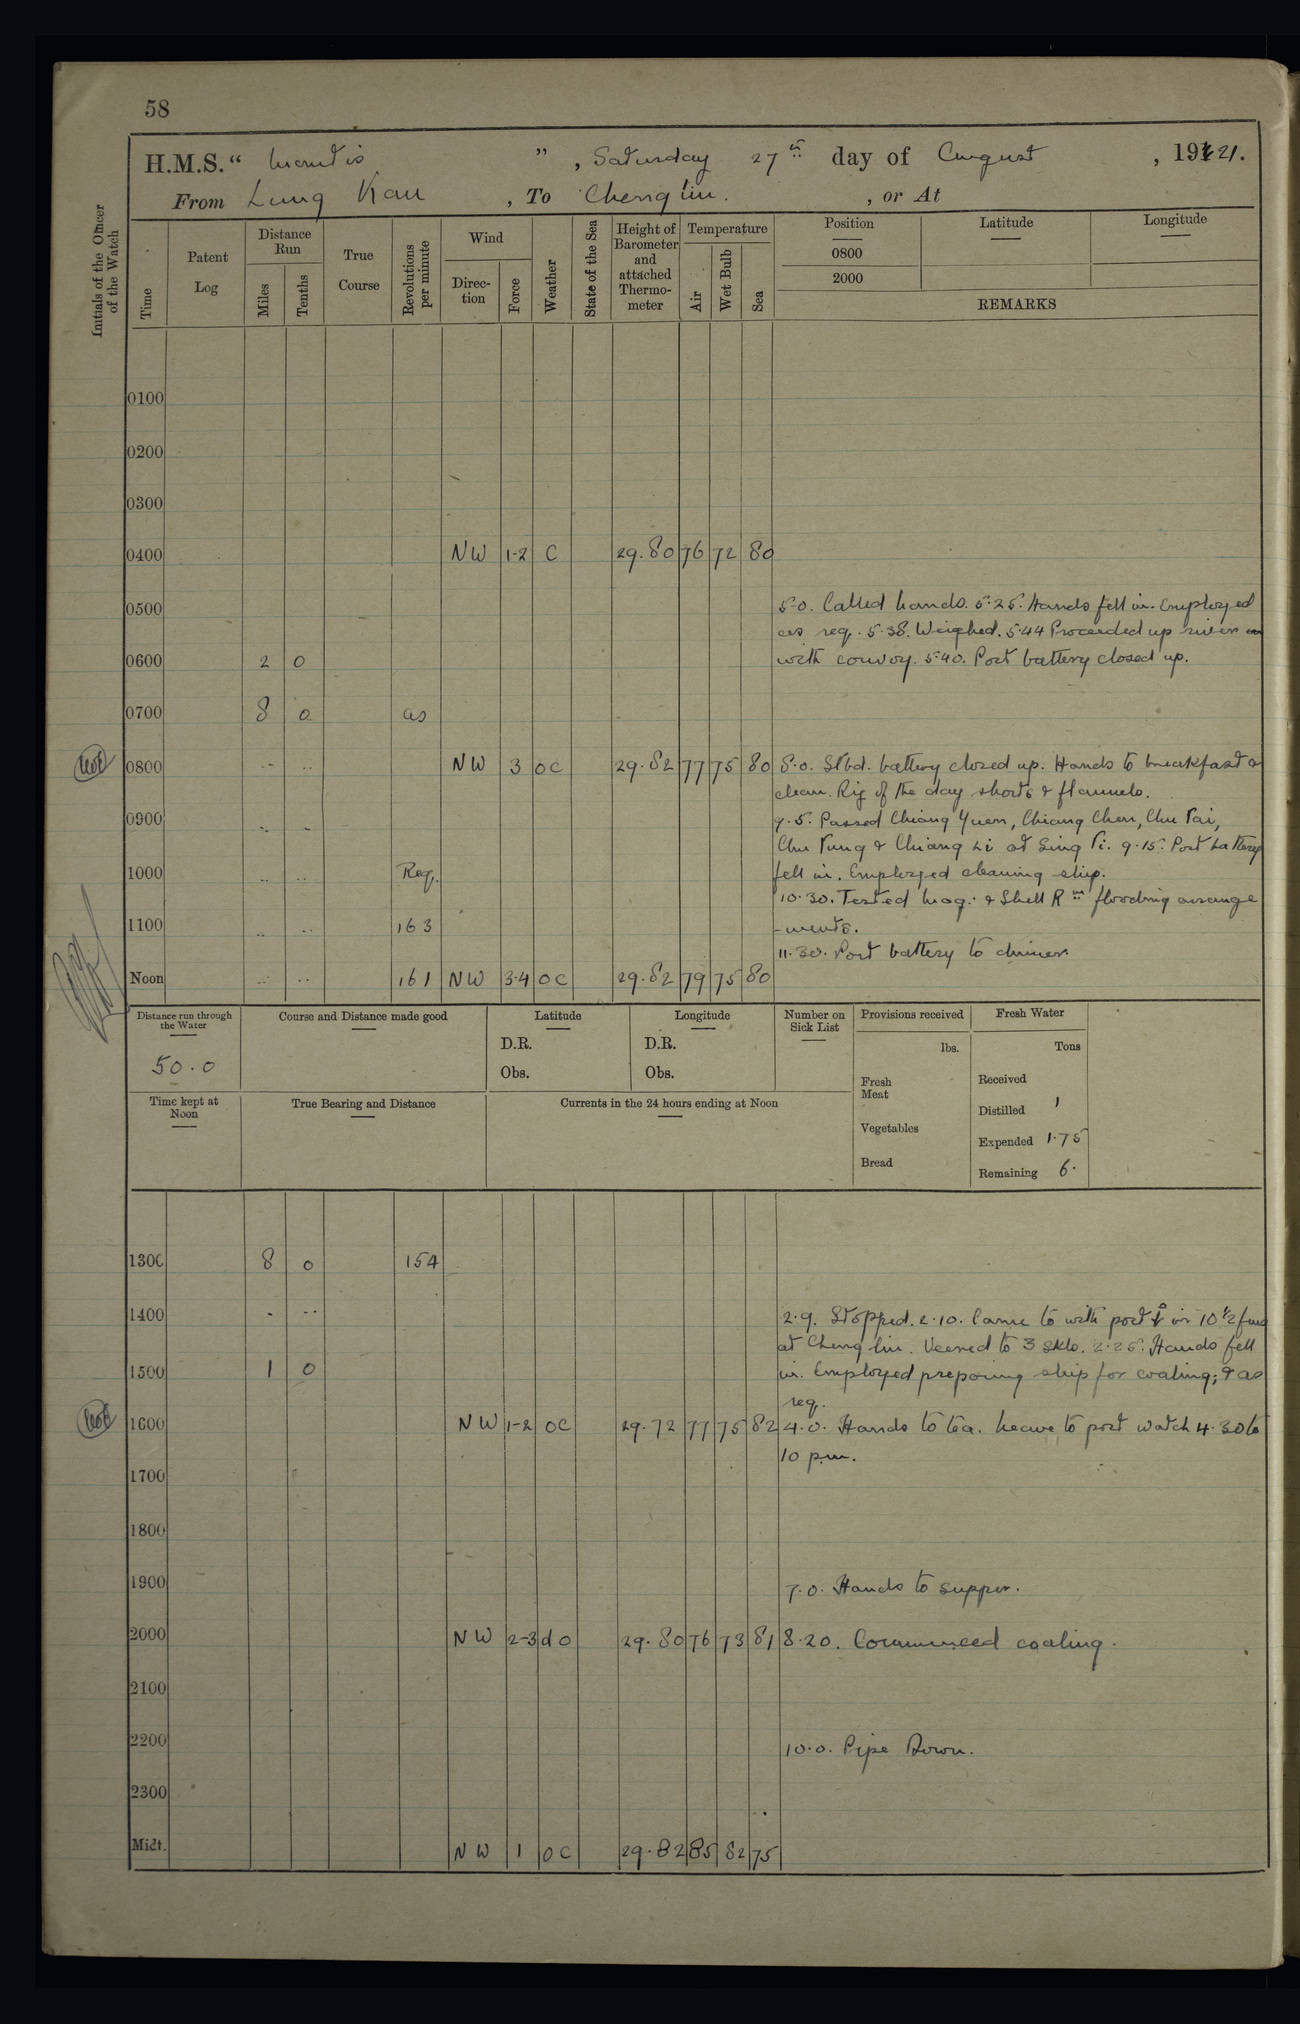 58
H.M.S. “ Mantis ” , Saturday 27th day of August , 1921.
From Lung Kau , To Chenglin. , or At
Initials of the Officer of the Watch
Time
Patent Log
Distance Run
Miles
Tenths
True Course
Revolutions per minute
Wind
Direction
Force
Weather
State of the Sea
Height of Barometer and attached Thermometer
Temperature
Air
Wet Bulb
Sea
Position
0800
2000
Latitude
Longitude
REMARKS
0100
0200
0300
0400 NW 1-2 C 29.80 76 72 80
0500 5.0. Called hands. 5.25. Hands fell in. Employed
as req. 5.38. Weighed. 5.44 Proceeded up river
0600 2 0 with convoy. 5.40. Port battery closed up.
0700 8 0 as
0800 .. .. NW 3 OC 29.82 77 75 80 8.0. Stbd. battery closed up. Hands to breakfast &
clean. Rig of the day shorts & flannels.
0900 .. .. 9.5. Passed Chiang Yuen, Chiang Chen, Chu Tai,
Chu Tung & Chiang Li at Sing Ti. 9.15. Port battery
1000 .. .. Req. fell in. Employed cleaning ship.
10.30. Tested Mag. & Shell Rm flooding arrange
1100 .. .. 163 -ments.
11.30. Port battery to dinner.
Noon .. .. 161 NW 3.4 OC 29.82 79 75 80
Distance run through the Water
50.0
Course and Distance made good
Latitude
D.R.
Obs.
Longitude
D.R.
Obs.
Number on Sick List
Provisions received
lbs.
Fresh Meat
Vegetables
Bread
Fresh Water
Tons
Received
Distilled 1
Expended 1.75
Remaining 6.
Time kept at Noon
True Bearing and Distance
Currents in the 24 hours ending at Noon
1300 8 0 154
1400 .. .. 2.9. Stopped. 2.10. Came to with port ⚓ in 10½ fms
at Chenglin. Veered to 3 Skls. 2.25. Hands fell
1500 1 0 in. Employed preparing ship for coaling; & as
req.
1600 NW 1-2 OC 29.72 77 75 82 4.0. Hands to tea. Leave to port watch 4.30 to
10 pm.
1700
1800
1900 7.0. Hands to supper.
2000 NW 2-3 do 29.80 76 73 81 8.20. Commenced coaling.
2100
2200 10.0. Pipe Down.
2300
Midt. NW 1 OC 29.82 85 82 75